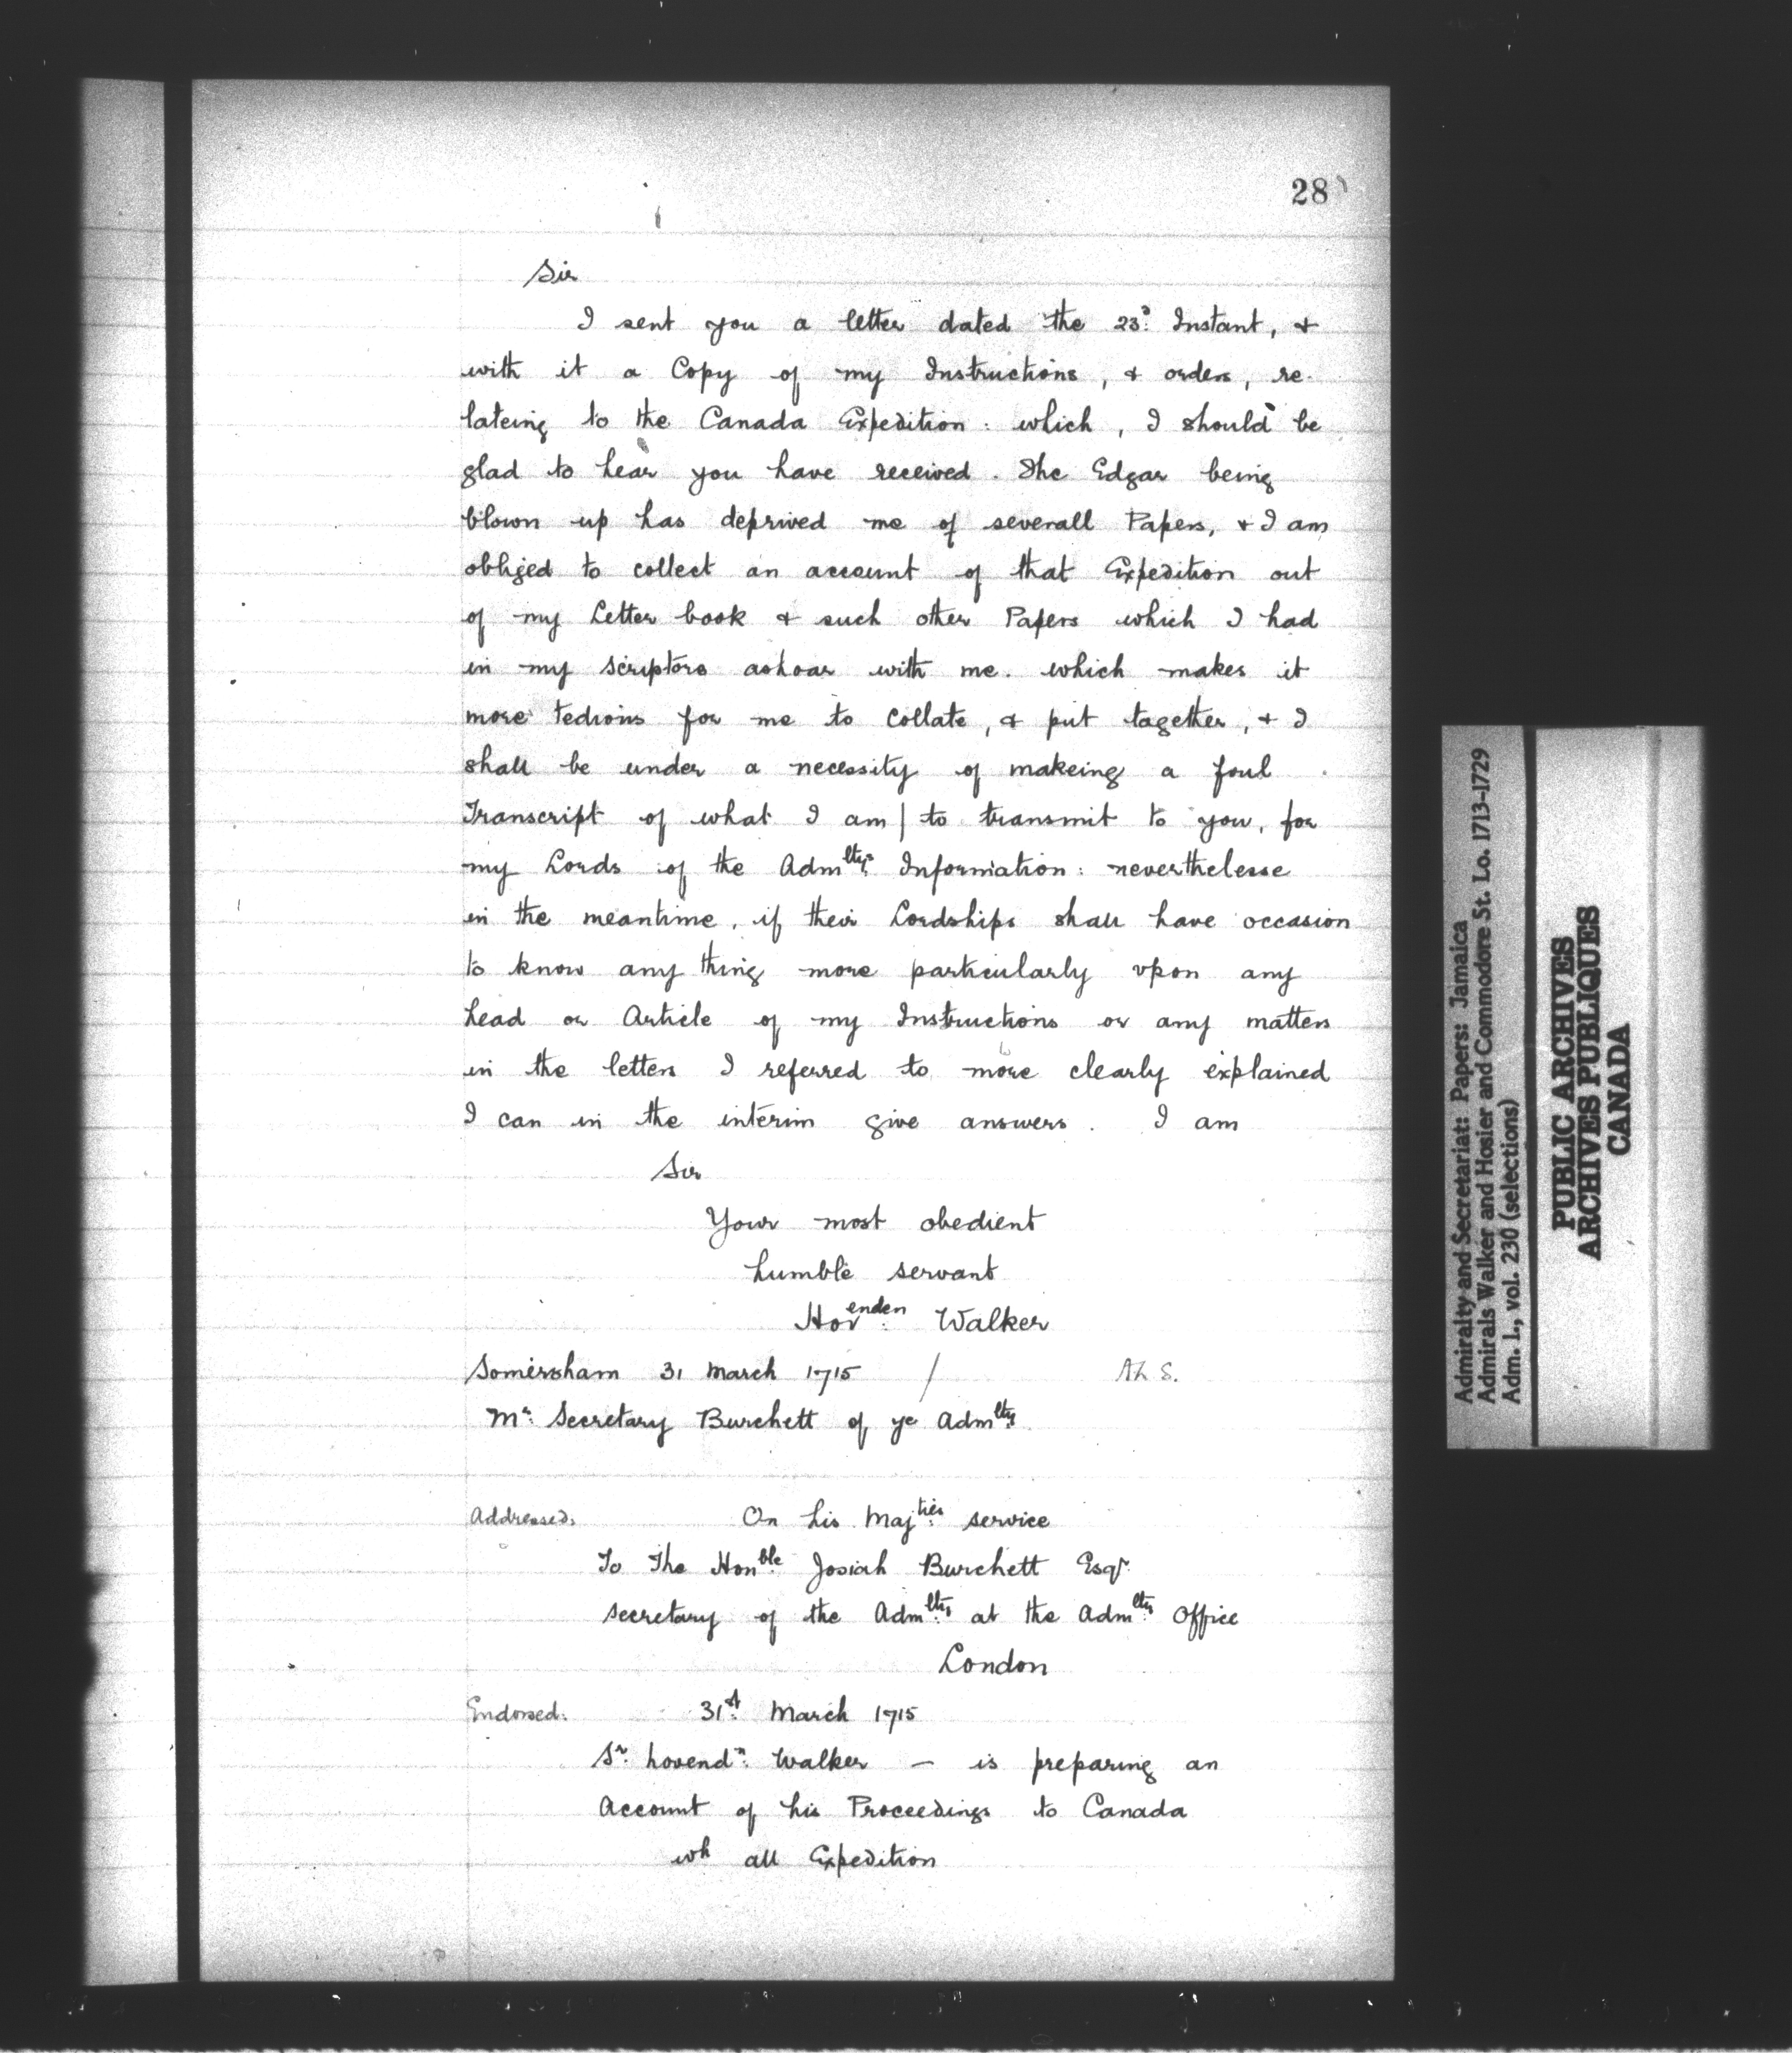 28
Sir
I sent you a letter dated the 23d. Instant, &
with it a Copy of my Instructions, & orders, re-
lateing to the Canada Expedition: which, I should be
glad to hear you have received. The Edgar being
blown up has deprived me of severall Papers, & I am
obliged to collect an account of that Expedition out
of my Letter book & such other Papers which I had
in my Scriptore ashoar with me. which makes it
more tedious for me to collate, & put together, & I
shall be under a necessity of makeing a foul
Transcript of what I am / to transmit to you, for
my Lords of the Admltys. Information: neverthelesse
in the meantime, if their Lordships shall have occasion
to know any thing more particularly vpon any
head or Article of my Instructions or any matters
in the letters I referred to more clearly explained
I can in the interim give answers. I am
Sir
Your most obedient
humble servant
Hovenden. Walker
Somersham 31 March 1715 / A L S.
Mr: Secretary Burchett of ye Admlty.
Addressed: On his Majties. service
To The Honble. Josiah Burchett Esqr.
secretary of the Admlty. at the Admlty. Office
London
Endorsed: 31st. March 1715
Sr. hovendn. Walker — is preparing an
Account of his Proceedings to Canada
wh all Expedition
Admiralty and Secretariat: Papers: Jamaica
Admirals Walker and Hosier and Commodore St. Lo. 1713-1729
Adm. 1., vol. 230 (selections)
PUBLIC ARCHIVES
ARCHIVES PUBLIQUES
CANADA